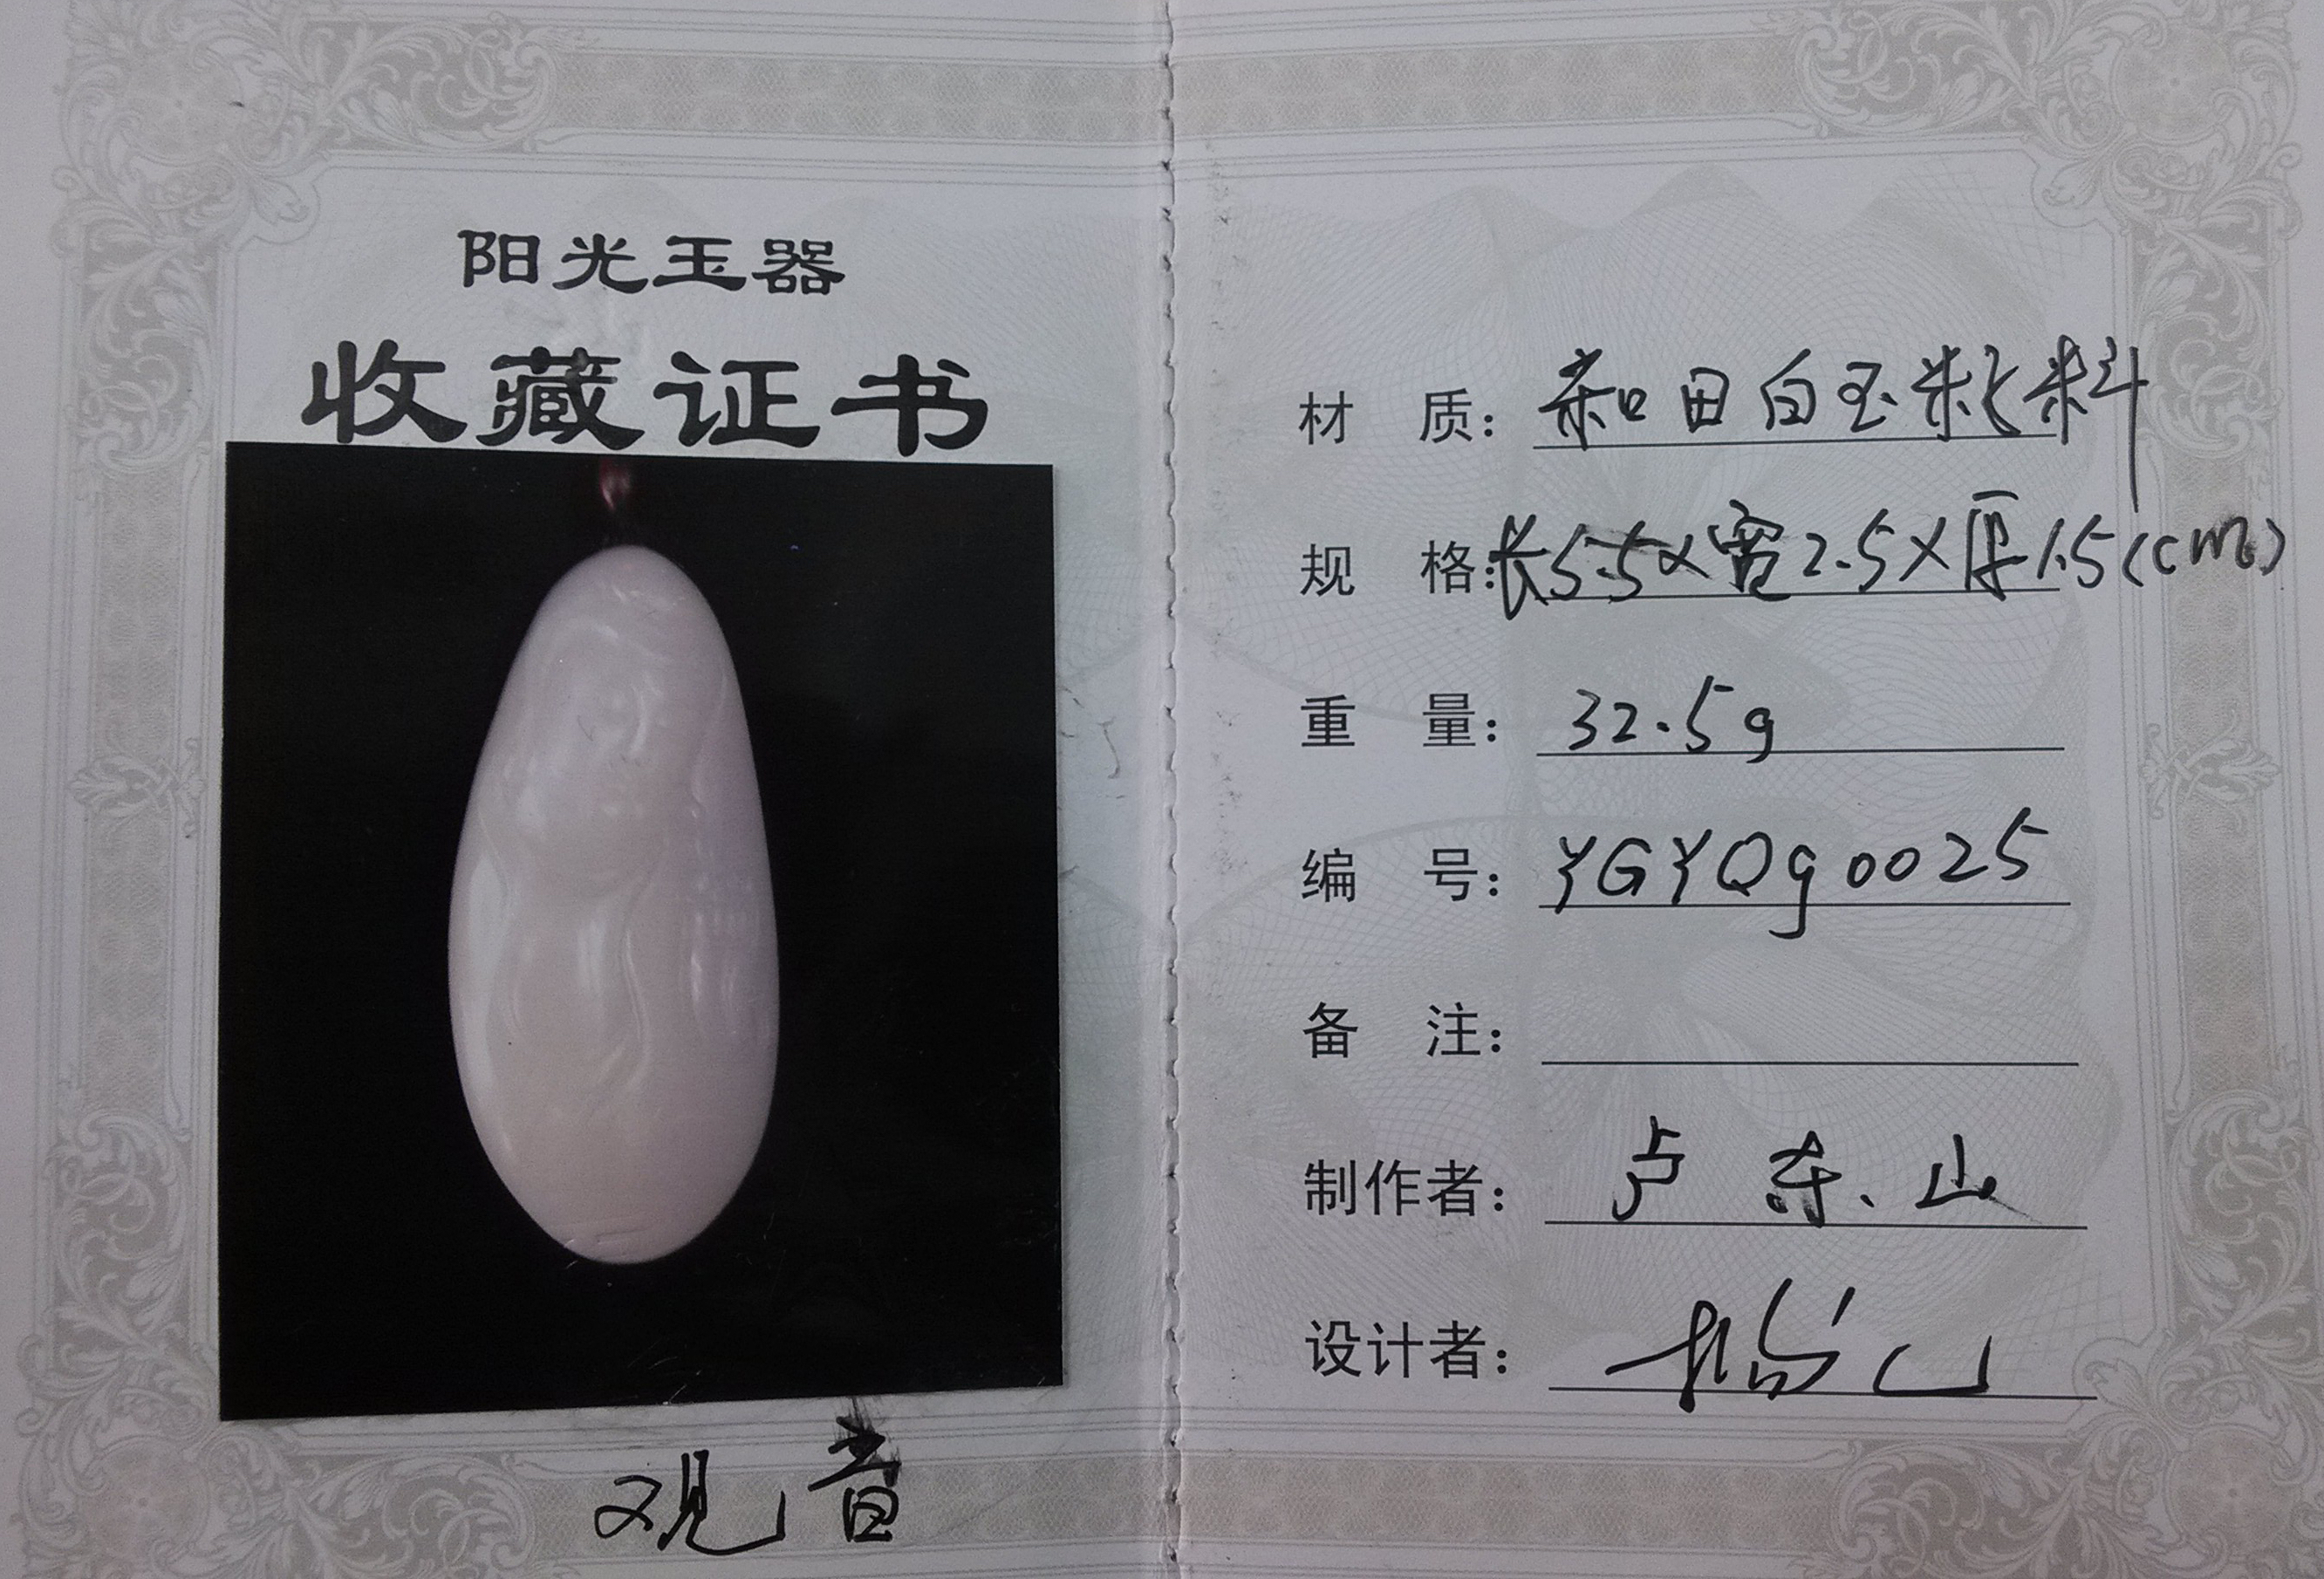 阳光玉器
收藏证书
观音
材 质：和田白玉籽料
规 格：长5.5×宽2.5×厚1.5(cm)
重 量：32.5g
编 号：YGYQg0025
备 注：
制作者：卢东山
设计者：